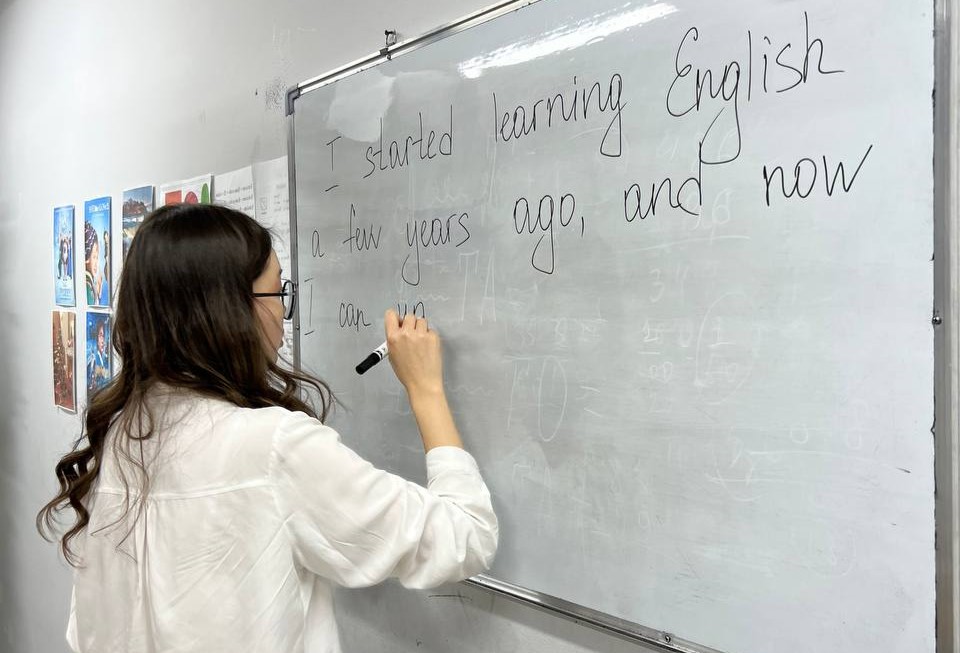 I started learning English
a few years ago, and now
I can un